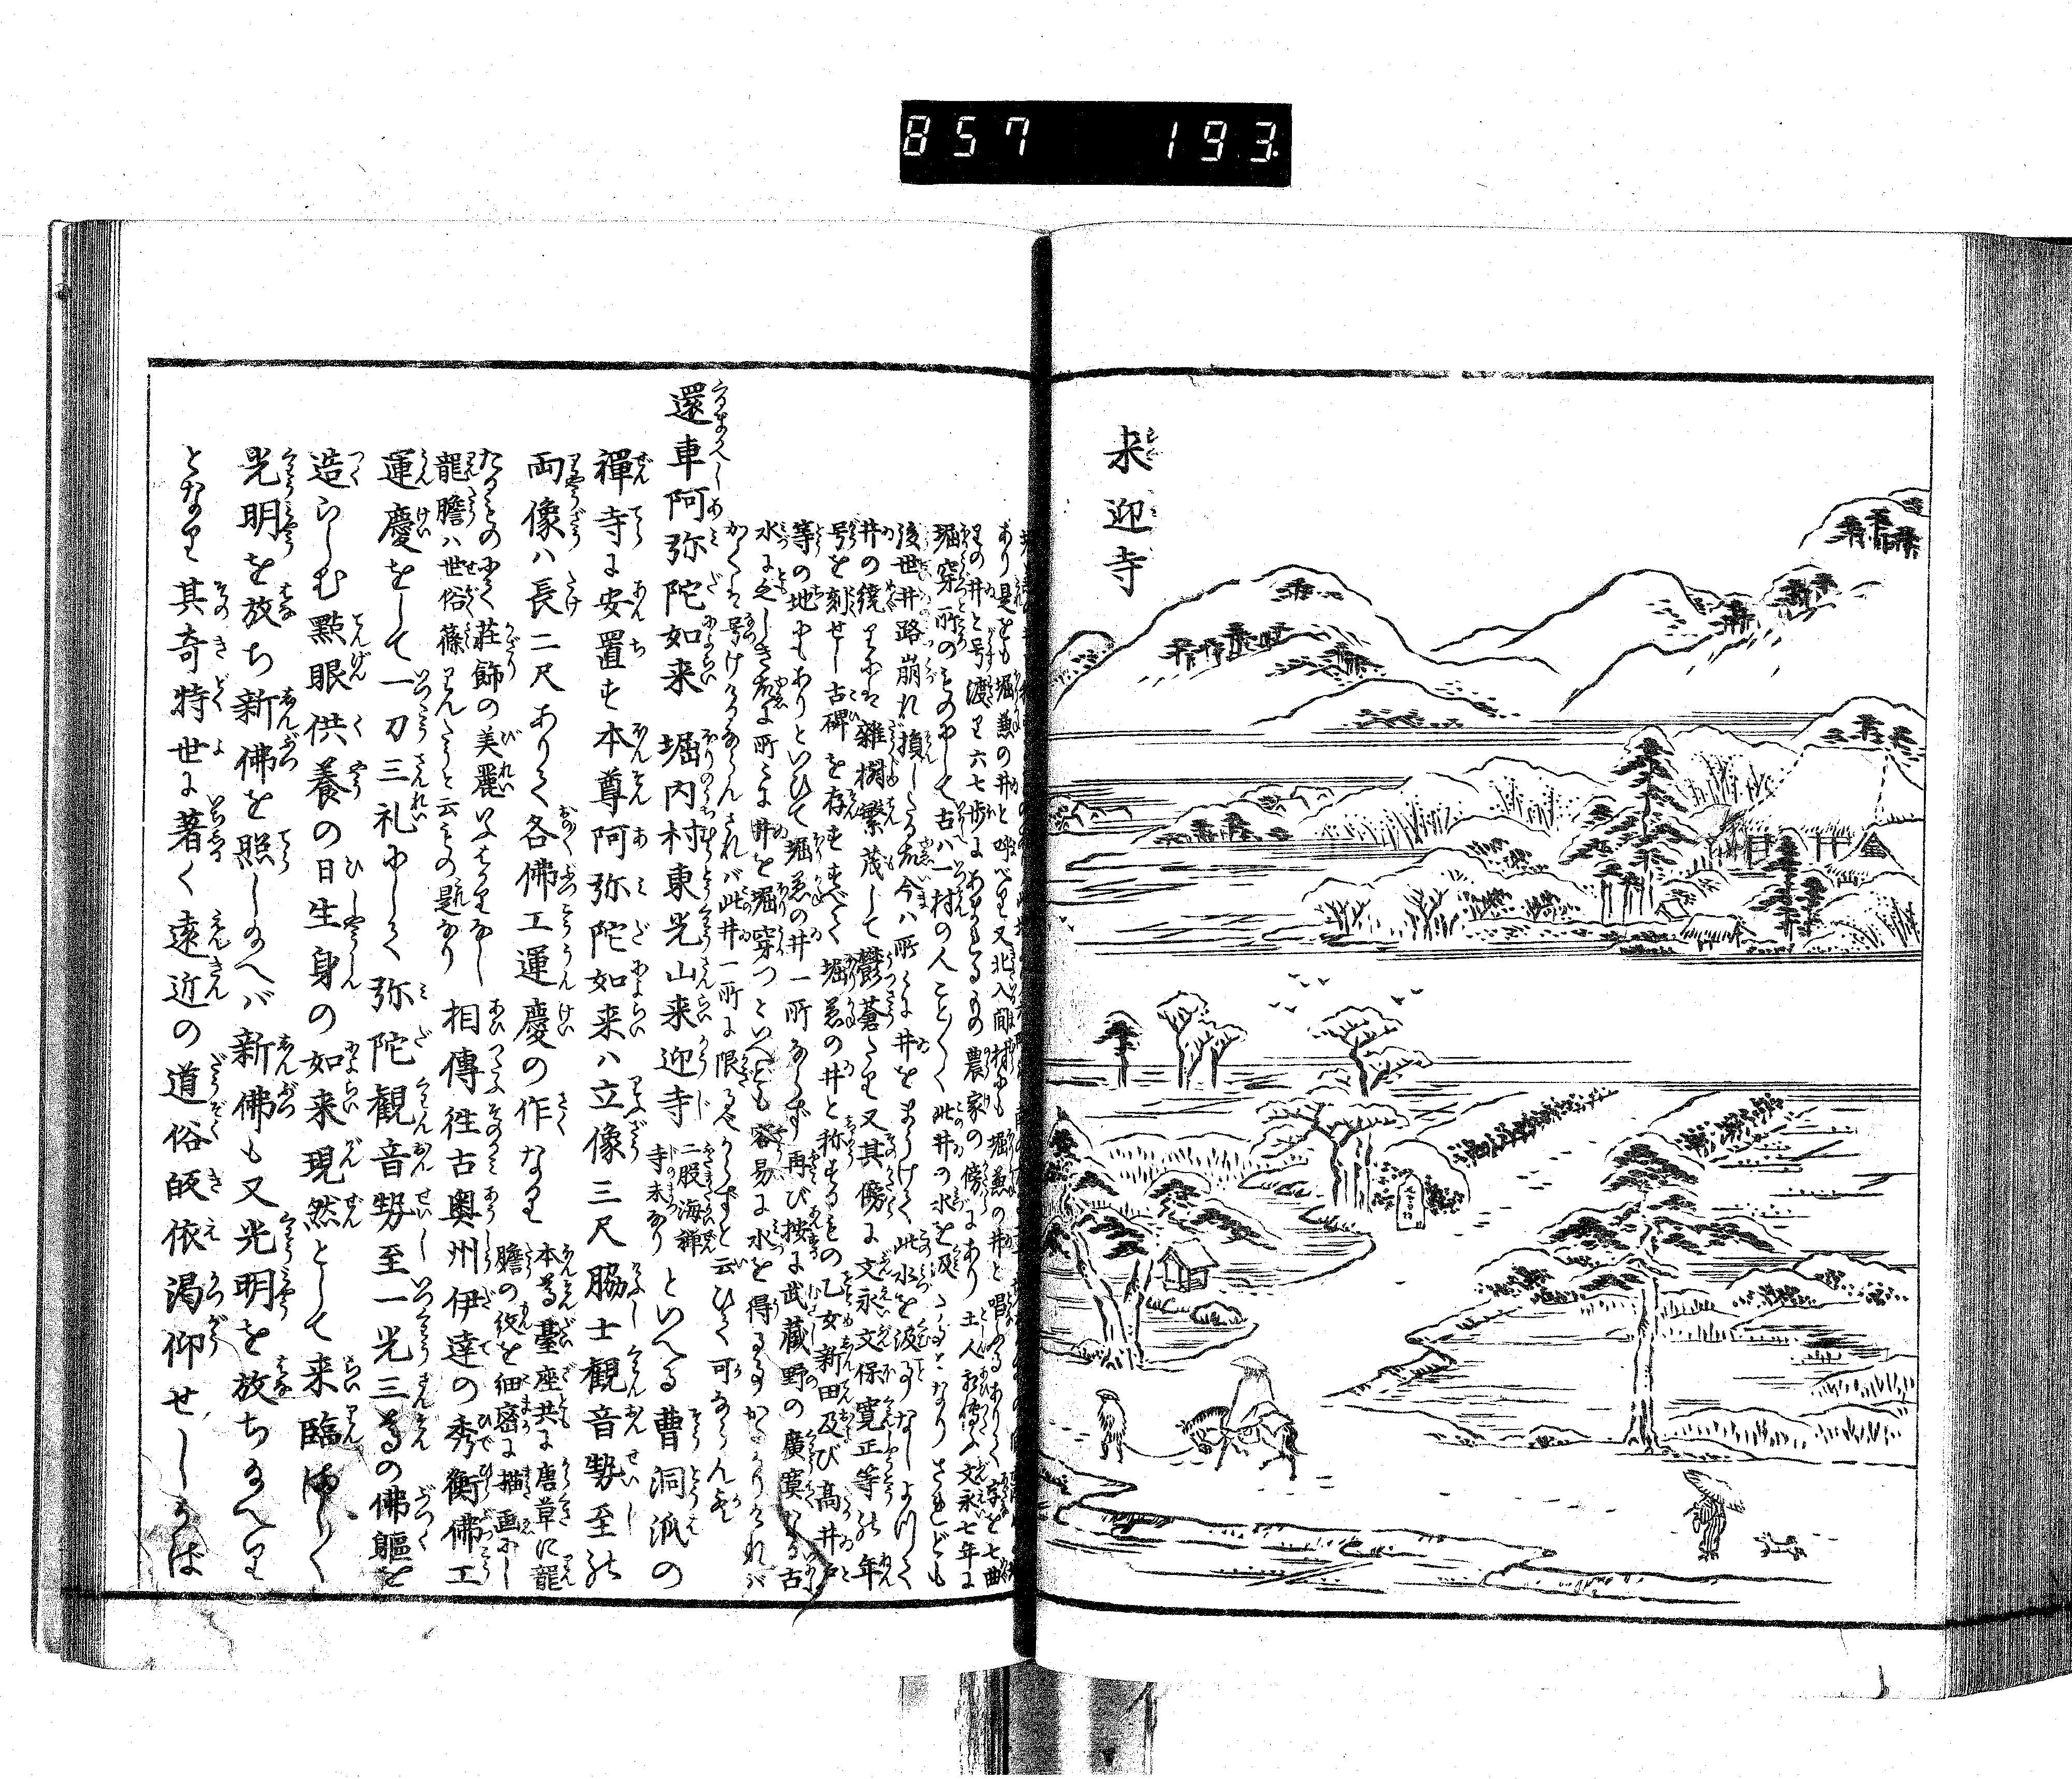 857 193
来迎寺
あり是をも堀兼の井と呼べり又北入間村にも堀兼の井と唱ふるありて字を七曲
りの井と号渡り六七歩にあまれるもの農家の傍にあり土人相伝ふ文永七年に
堀穿所のものにして古ハ一村の人ことごとく此井の水を汲
後世井路崩れ損したる故今ハ所々に井をまうけて此水を汲事なしよりて
井の繞りには雑樹繁茂して鬱蒼たり又其傍に文永文保寛正等の年
号を刻せし古碑を存すすべて堀兼の井と称するもの乙女新田及び高井戸
等の地にもありといひて堀兼の井一所ならず再び按に武蔵野の廣漠たる古
水に乏しき故に所々に井を堀穿つといへども容易に水を得る事かたかりければ
かくは号けけるならんされバ此井一所に限るべからずと云ひて可ならん歟
還車阿弥陀如来 堀内村東光山来迎寺 二股海禅寺末なり といへる曹洞派の
禅寺に安置す本尊阿弥陀如来ハ立像三尺脇士観音勢至の
両像ハ長二尺ありて各佛工運慶の作なり 本尊臺座共に唐草に龍膽の紋を細密に描画にし
たるものにて荘飾の美麗いふはかりなし龍膽ハ世俗篠りんたうと云もの是なり 相傳往古奥州伊達の秀衡佛工
運慶をして一刀三礼にして弥陀観音勢至一光三尊の佛軀を
造らしむ點眼供養の日生身の如来現然として来臨ましまして
光明を放ち新佛を照しのへバ新佛も又光明を放ちのへり
となり其奇特世に著く遠近の道俗皈依渇仰せしかは